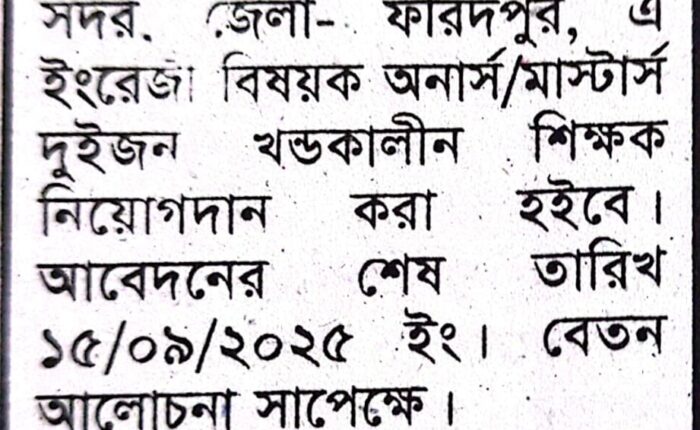 সদর, জেলা- ফরিদপুর, এ
ইংরেজী বিষয়ক অনার্স/মাস্টার্স
দুইজন খন্ডকালীন শিক্ষক
নিয়োগদান করা হইবে।
আবেদনের শেষ তারিখ
১৫/০৯/২০২৫ ইং। বেতন
আলোচনা সাপেক্ষে।